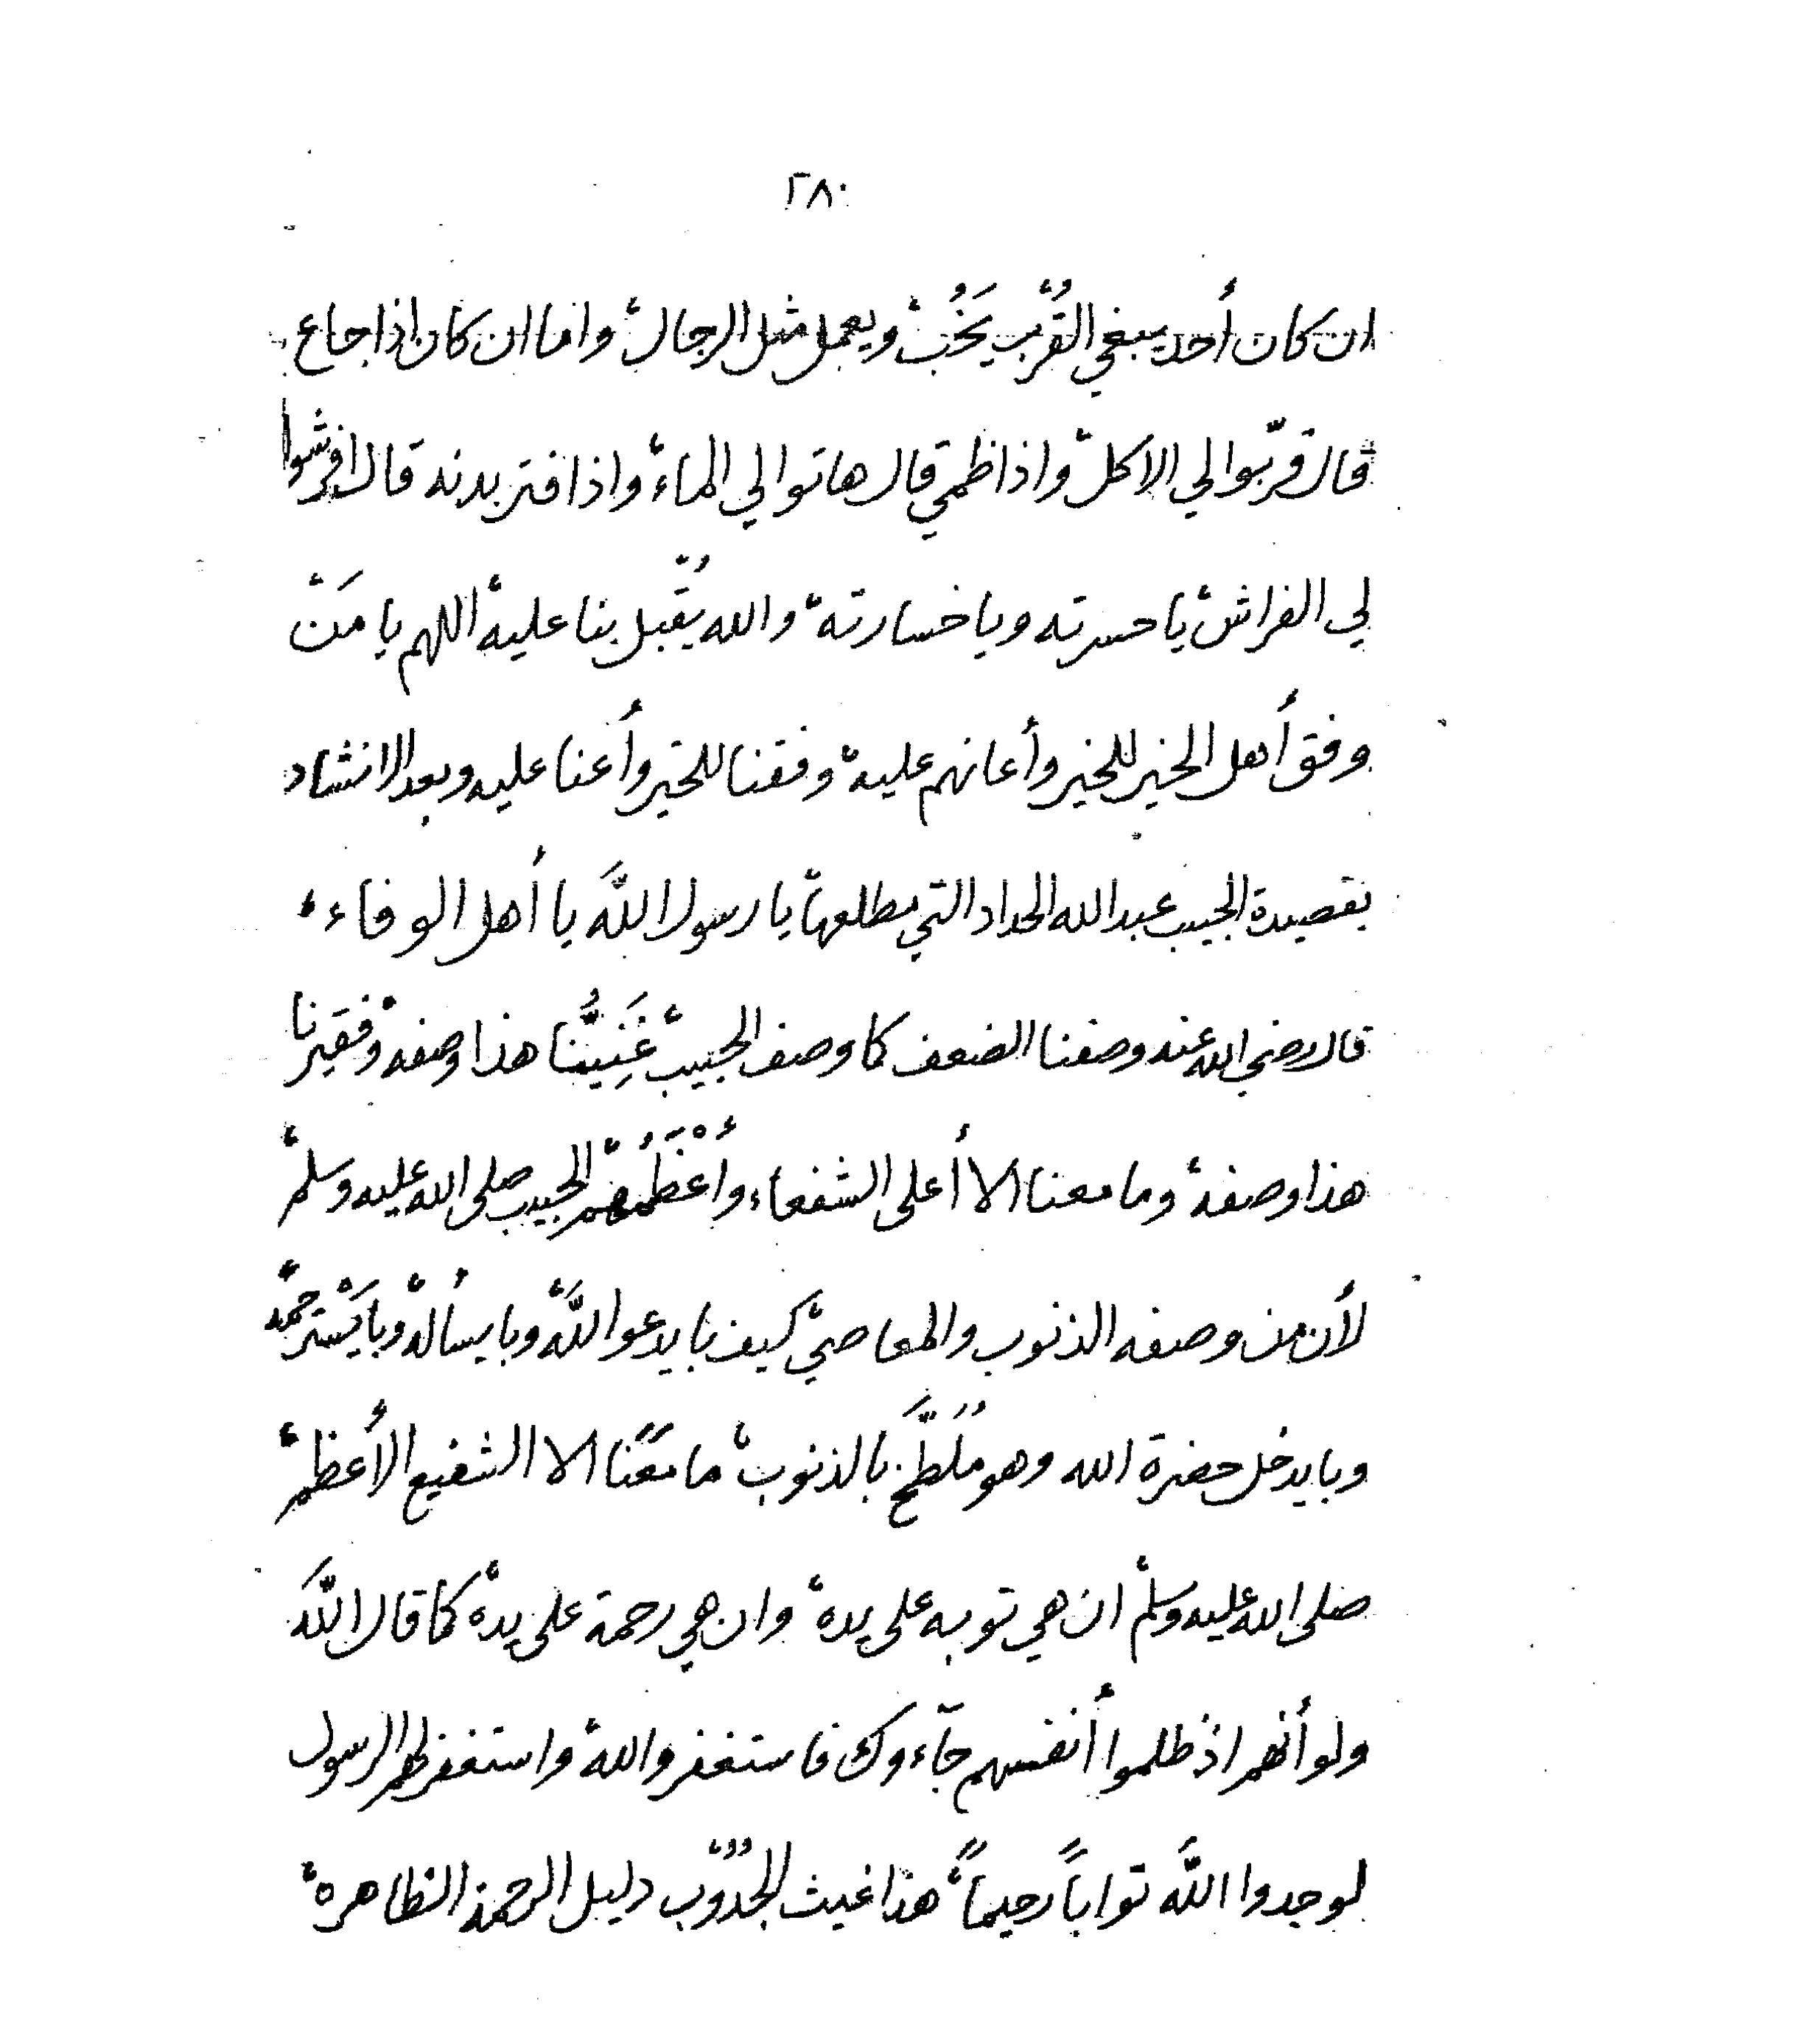 ٢٨٠
ان كان أحد يبغي القُرْب يَخُبْ، ويعمل مثل الرجال، واما ان كان اذا جاع
قال قرّبوا لي الاكل، واذا ظمي قال هاتوا لي الماء، واذا فتر بدنه قال افرشوا
لي الفراش، يا حسرته ويا خسارته، والله يُقْبل بنا عليه، اللهم يا مَنْ
وفق أهل الخير للخير وأعانهم عليه، وفقنا للخير وأعنا عليه وبعد الانشاد
بقصيدة الحبيب عبدالله الحداد التي مطلعها، يا رسول اللَّه يا أهل الوفاء،
قال رضي الله عنه وصفنا الضعف كما وصف الحبيب، غَنِيُّنا هذا وصفه، وفقيرنا
هذا وصفه، وما معنا الا أعلى الشفعاء وأعْظَمُهُمْ الحبيب صلى الله عليه وسلم،
لأن من وصفه الذنوب والمعاصي، كيف با يدعو اللَّه، وبا يسأله، وبا يَسْترحمه،
وبا يدخل حضرة الله وهو مُلَطَّخ بالذنوب، ما معَنا الا الشفيع الأعظم،
صلى الله عليه وسلم، ان هي توبه على يده، وان هي رحمة على يده، كما قال اللَّه
ولو أنهم اذ ظلموا أنفسهم جآءوك فاستغفروا الله، واستغفر لهم الرسول
لوجدوا اللَّه تواباً رحيماً، هذا غيث الجُدُوْب، دليل الرحمة الظاهره،